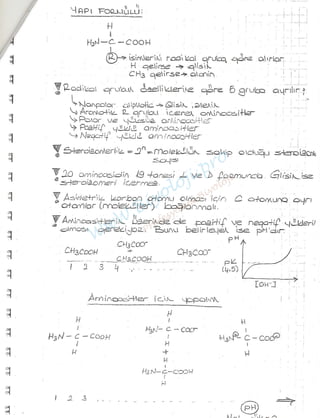 YAPI FORMÜLÜ:
H
H₂N - C - COOH
R → isimlerini radikal gruba göre alırlar.
H gelirse → glisin
CH₃ gelirse → alanin
Radikal grubun özelliklerine göre 5 gruba ayrılır!
Nonpolar alifatik → Glisin, alanin
Aromatik R grubu içeren aminoasitler
Polar ve yüksüz aminoasitler
Pozitif yüklü aminoasitler
Negatif yüklü aminoasitler
Stereoizomerlik = 2ⁿ = molekülün sahip olduğu stereoizomer
sayısı
20 aminoasidin 19 tanesi L ve D formunda Glisin ise
stereoizomeri içermez
Asimetrik karbon atomu olması için C atomuna ayrı
atomlar (moleküller) bağlanmalı.
Aminoasitlerin üzerinde de pozitif ve negatif yüklerin
olması gerekiyor. Bunu belirleyen ise pH'dır.
CH₃COO⁻
CH₃COOH CH₃COO⁻
CH₃COOH
1 2 3 4
pH
pK
(4.5)
[OH⁻]
Aminoasitler için yapalım
H
H₃N - C - COOH
H
H
H₃N - C - COO⁻
H
+
H
H₃N - C - COOH
H
H₃N⁺ - C - COO⁻
H
1 2 3
pH